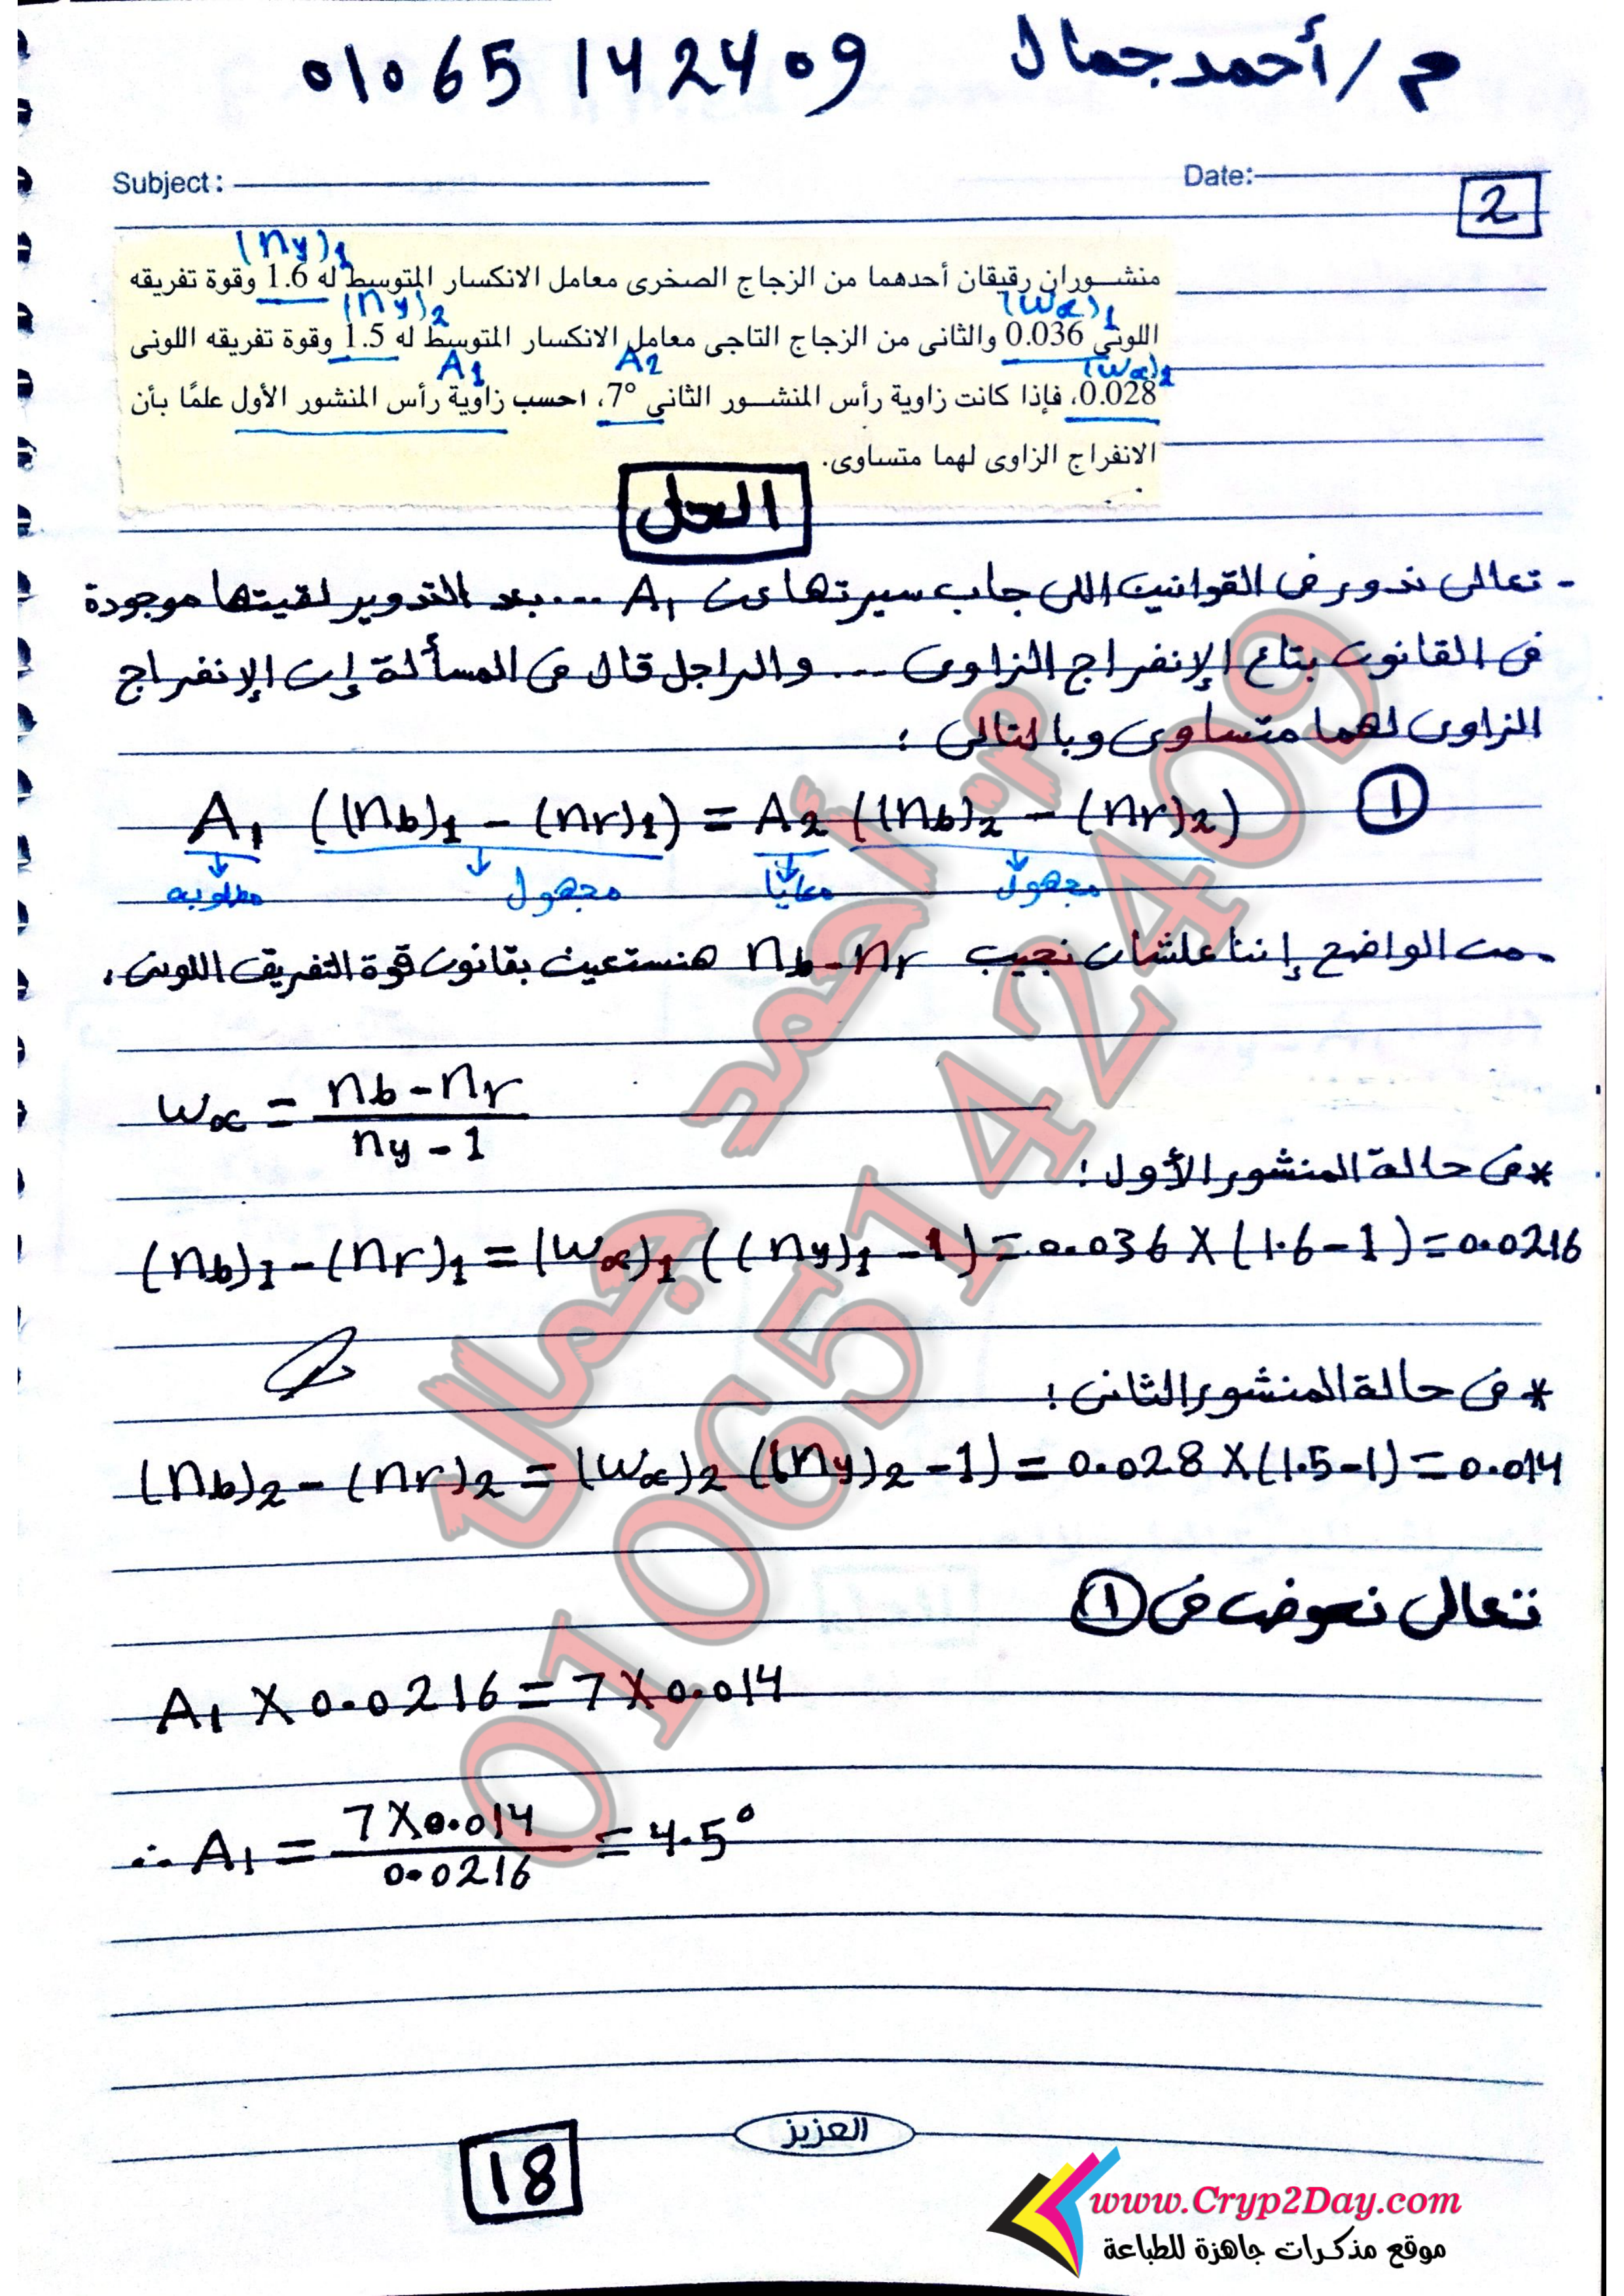 م/أحمد جمال 01065142409
Subject: Date:
2
(ny)1
منشوران رقيقان أحدهما من الزجاج الصخرى معامل الانكسار المتوسط له 1.6 وقوة تفريقه
(ny)2 (wα)1
اللونى 0.036 والثانى من الزجاج التاجى معامل الانكسار المتوسط له 1.5 وقوة تفريقه اللونى
A1 A2 (wα)2
0.028، فإذا كانت زاوية رأس المنشور الثانى 7°، احسب زاوية رأس المنشور الأول علمًا بأن
الانفراج الزاوى لهما متساوى.
الحل
- تعالى ندور فى القوانين اللى جاب سيرتها عن A1 ... بعد التدوير لقيتها موجودة
فى القانون بتاع الإنفراج الزاوى ... والراجل قال فى المسألة إن الإنفراج
الزاوى لهما متساوى وبالتالى :
A1 ((nb)1 - (nr)1) = A2 ((nb)2 - (nr)2) ①
مطلوبه مجهول معايا مجهول
- من الواضح إننا علشان نجيب nb - nr هنستعين بقانون قوة التفريق اللونى.
wα = nb - nr / ny - 1
* فى حالة المنشور الأول :
(nb)1 - (nr)1 = (wα)1 ((ny)1 - 1) = 0.036 X (1.6 - 1) = 0.0216
* فى حالة المنشور الثانى :
(nb)2 - (nr)2 = (wα)2 ((ny)2 - 1) = 0.028 X (1.5 - 1) = 0.014
تعالى نعوض فى ①
A1 X 0.0216 = 7 X 0.014
∴ A1 = 7 X 0.014 / 0.0216 = 4.5°
م. أحمد جمال
01065142409
العزيز
18
www.Cryp2Day.com
موقع مذكرات جاهزة للطباعة